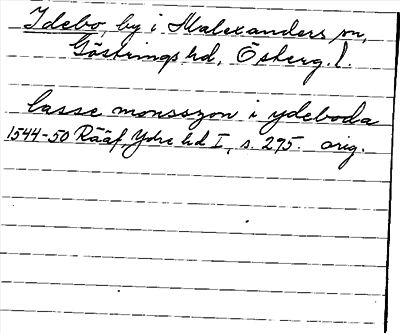 Idebo, by i Malexanders sn,
Göstrings hd, Österg. l.
lasse monsszon i ydeboda
1544-50 Rääf, Ydre hd I, s. 295. orig.